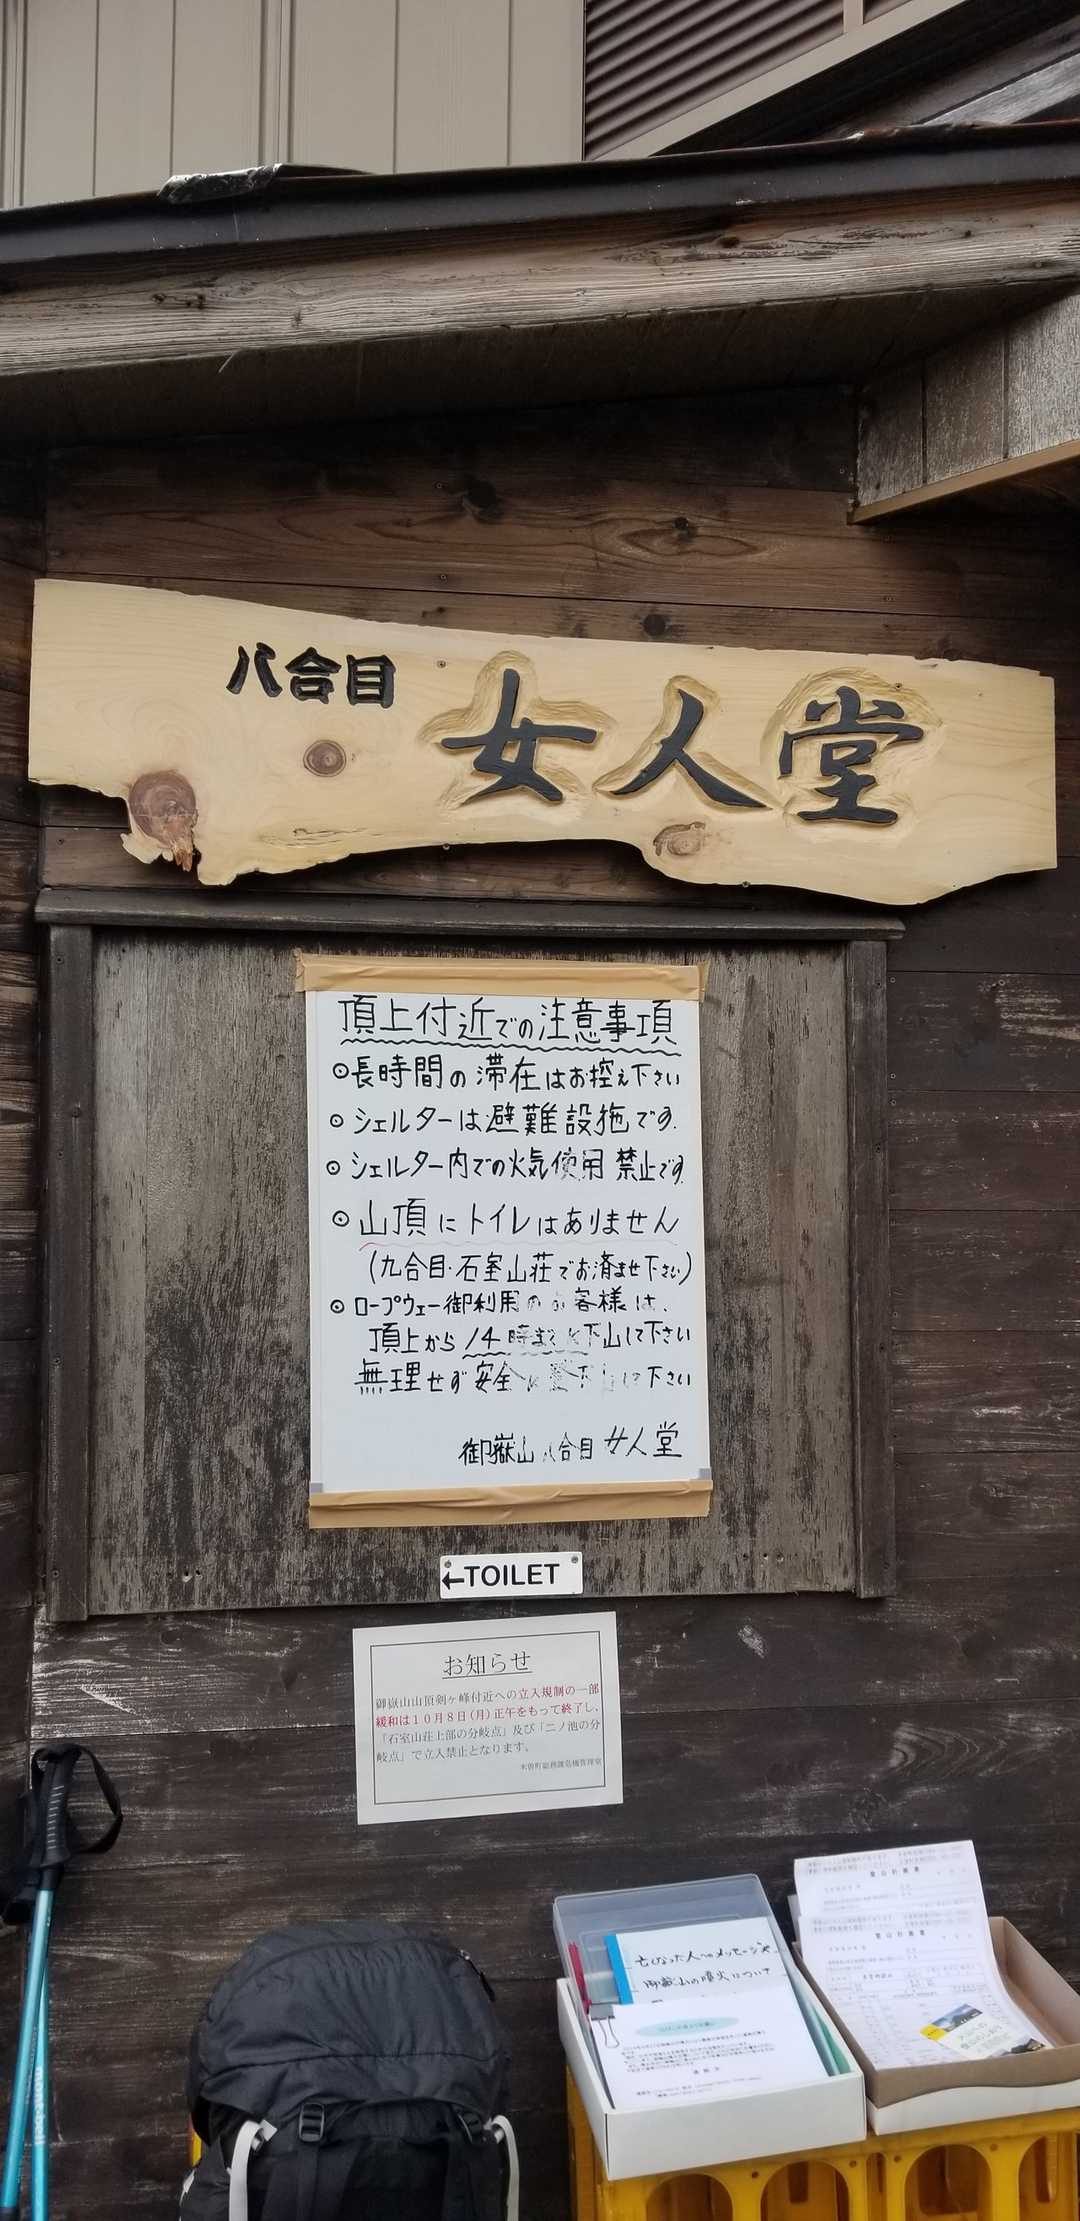 八合目 女人堂
頂上付近での注意事項
⊙長時間の滞在はお控え下さい
⊙シェルターは避難設施です.
⊙シェルター内での火気使用禁止です.
⊙山頂にトイレはありません
(九合目・石室山荘でお済ませ下さい)
⊙ロープウェー御利用のお客様は、
頂上から14時までに下山して下さい
無理せず安全に登下山して下さい
御嶽山 八合目 女人堂
←TOILET
お知らせ
御嶽山山頂剣ヶ峰付近への立入規制の一部
緩和は10月8日(月)正午をもって終了し、
「石室山荘上部の分岐点」及び「二ノ池の分
岐点」で立入禁止となります。
木曽町総務課危機管理室
亡くなった人へのメッセージや
御嶽山の噴火について
登山計画書
登山計画書
mont-bell